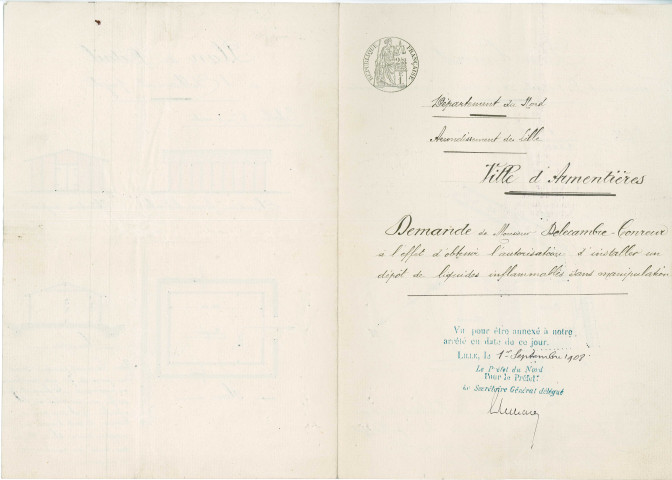 RÉPUBLIQUE FRANÇAISE
Département du Nord
Arrondissement de Lille
Ville d'Armentières
Demande de Monsieur Delecambre-Conreur
à l'effet d'obtenir l'autorisation d'installer un
dépôt de liquides inflammables sans manipulation
Vu pour être annexé à notre
arrêté en date du ce jour.
LILLE, le 1er Septembre 1908
Le Préfet du Nord
Pour le Préfet
Le Secrétaire Général délégué